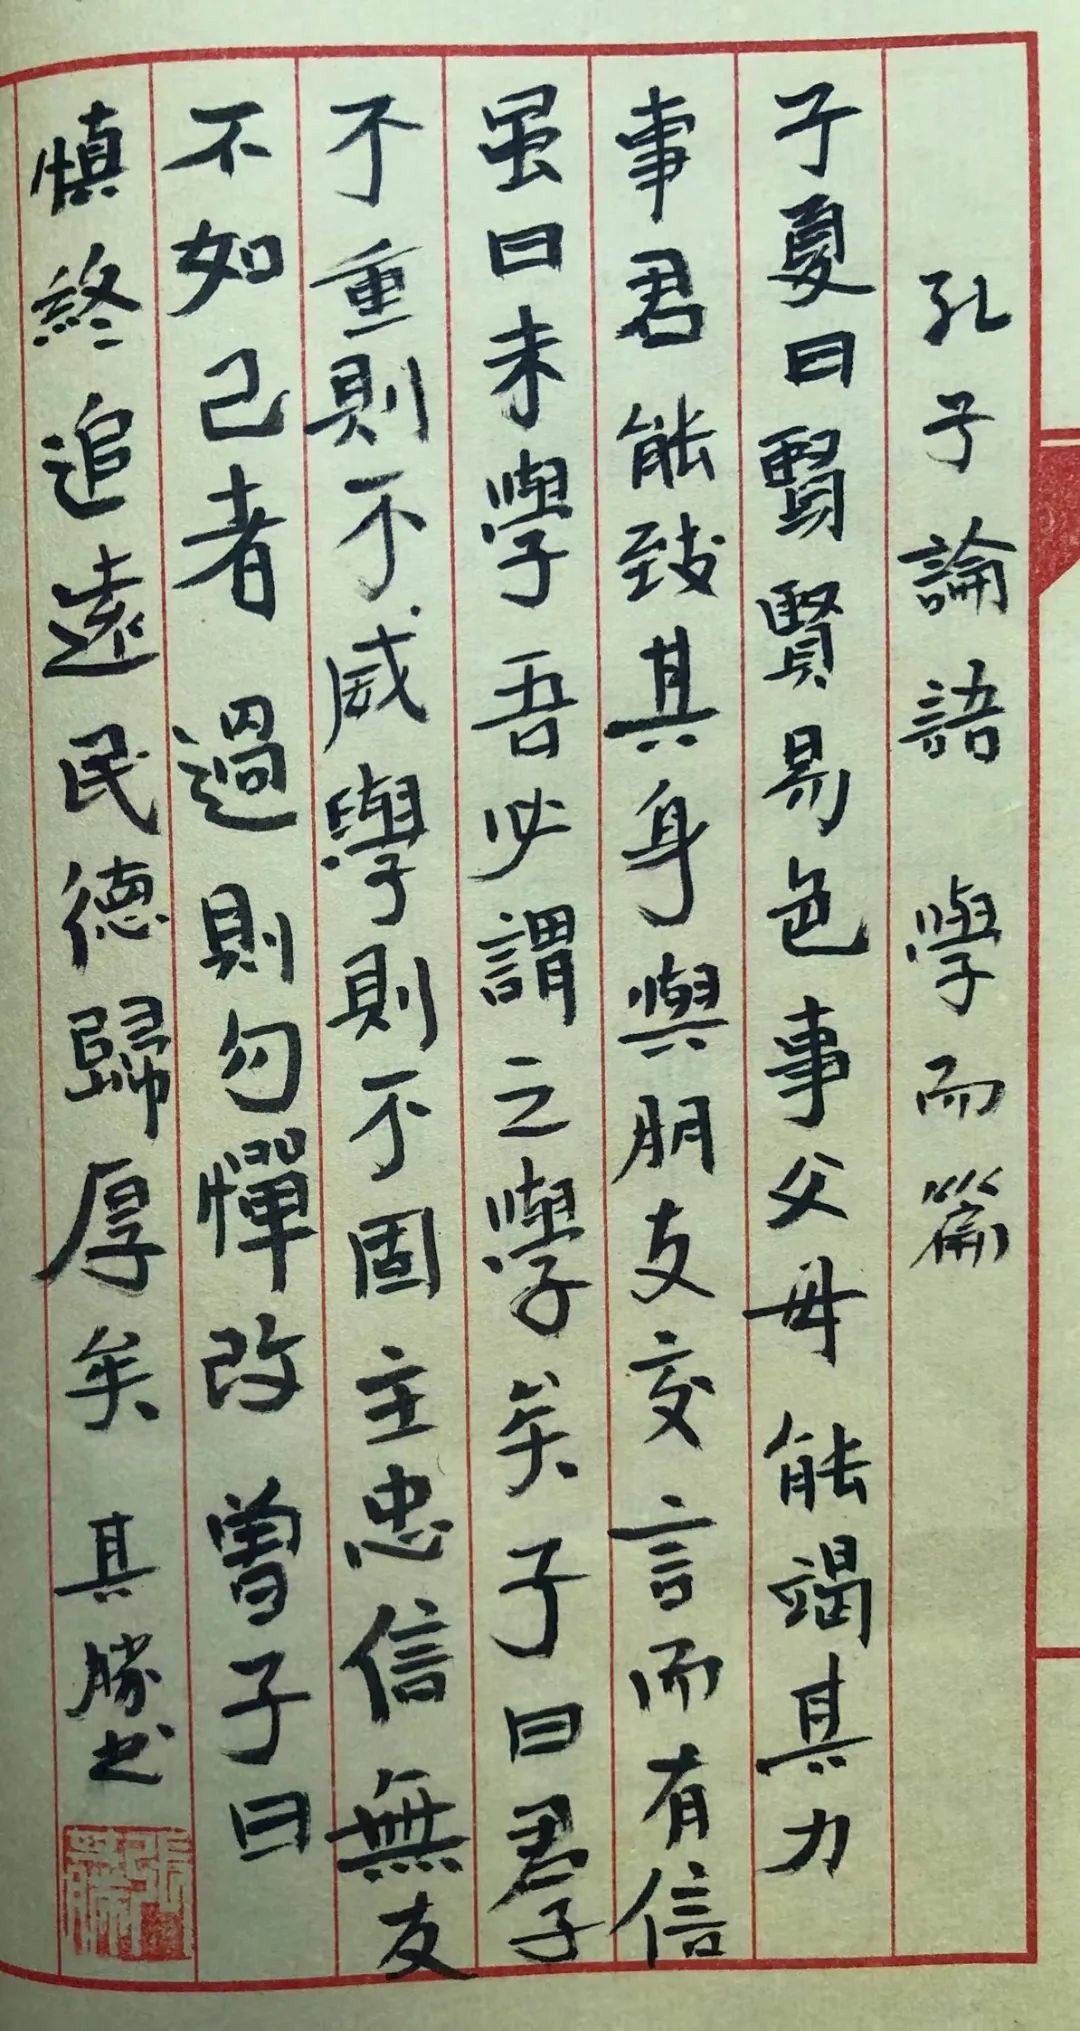 孔子論語 學而篇
子夏曰賢賢易色事父母能竭其力
事君能致其身與朋友交言而有信
虽曰未學吾必謂之學矣子曰君子
不重則不威學則不固主忠信無友
不如己者過則勿憚改曾子曰
慎終追遠民德歸厚矣其勝书